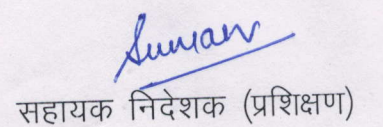 Suman
सहायक निदेशक (प्रशिक्षण)